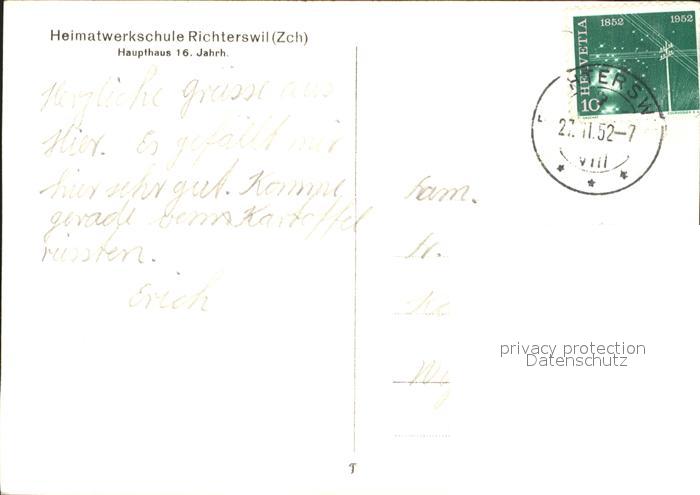 Heimatwerkschule Richterswil (Zch)
Haupthaus 16. Jahrh.
Herzliche Grüsse aus
Hier. Es gefällt mir
hier sehr gut. Komme
gerade vom Kartoffel
rüssten.
Erich
HELVETIA
1852 1952
10
TERSW
27.II.52-7
VIII
Fam.
privacy protection
Datenschutz